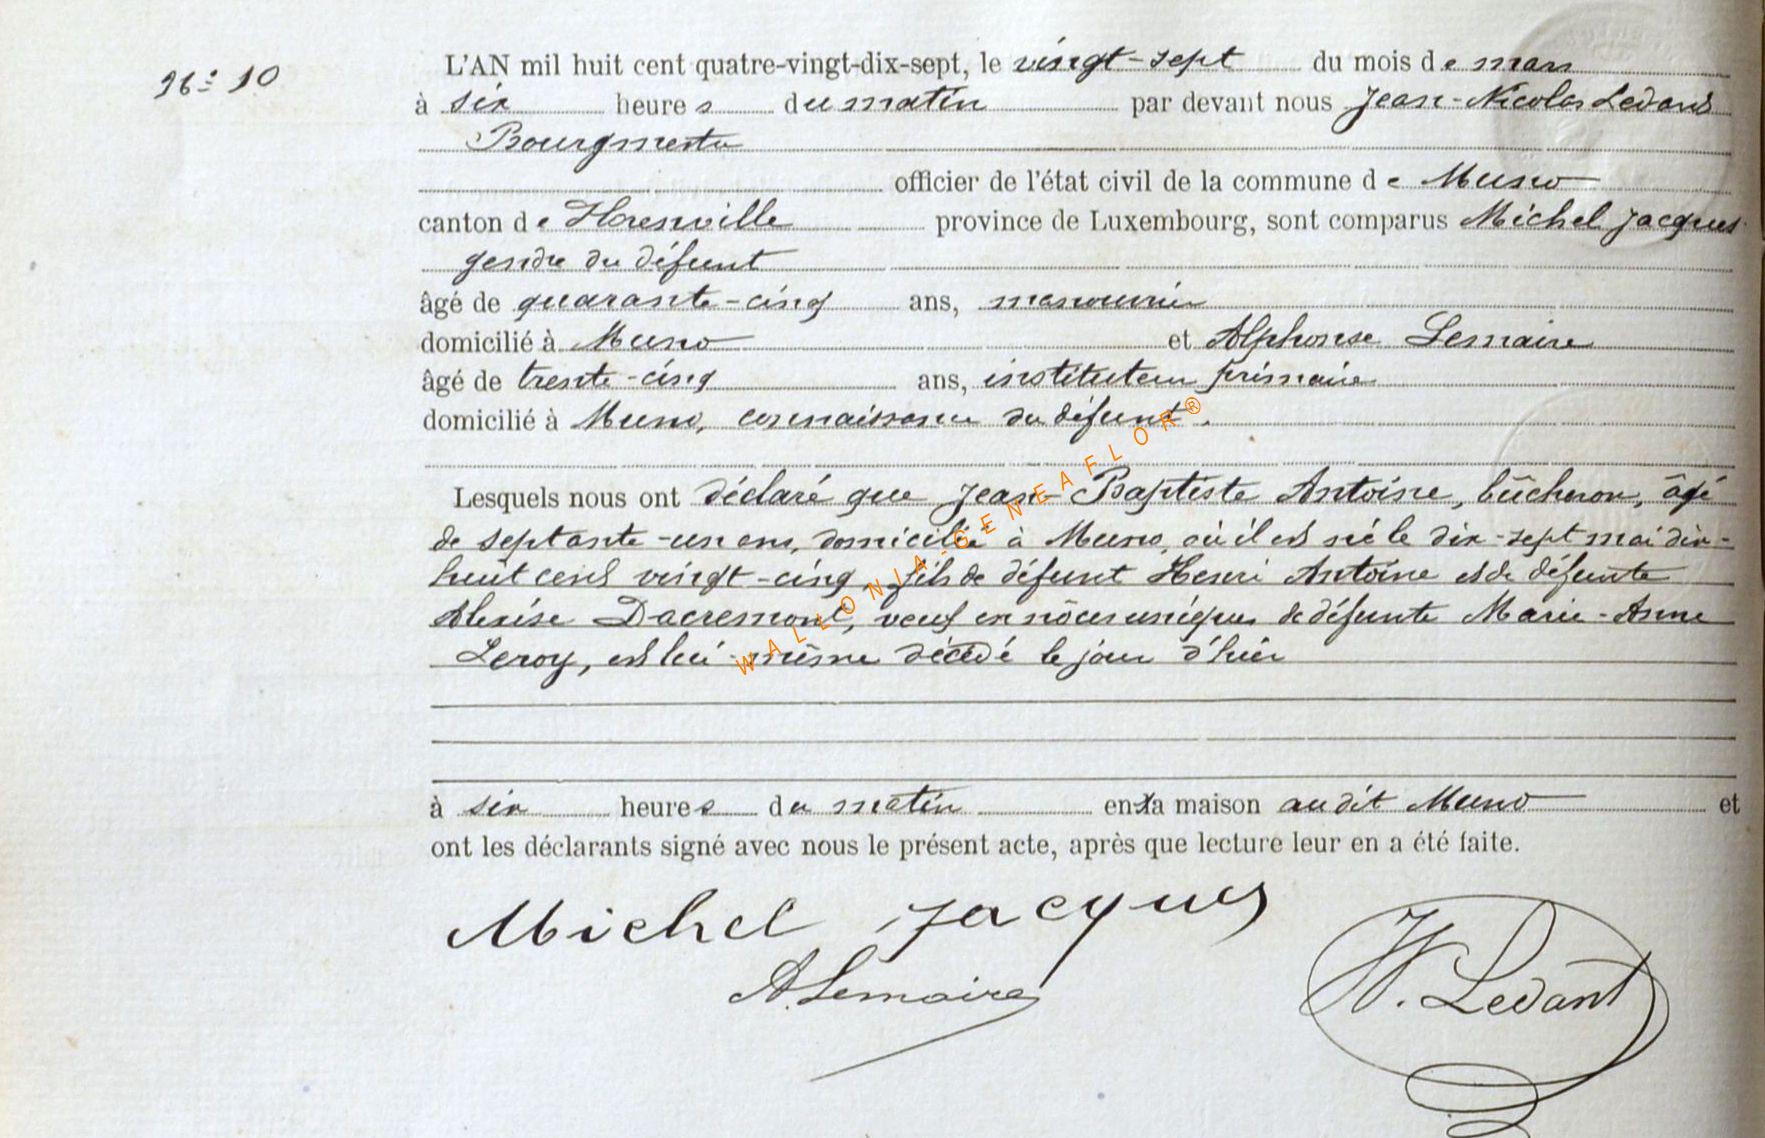 N° 10
L'AN mil huit cent quatre-vingt-dix-sept, le vingt-sept du mois de mars
à six heures du matin par devant nous Jean-Nicolas Ledant
Bourgmestre
officier de l'état civil de la commune de Muno
canton de Florenville province de Luxembourg, sont comparus Michel Jacques
gendre du défunt
âgé de quarante-cinq ans, manouvrier
domicilié à Muno et Alphonse Lemaire
âgé de trente-cinq ans, instituteur primaire
domicilié à Muno, connaissance du défunt.
Lesquels nous ont déclaré que Jean-Baptiste Antoine, bûcheron, âgé
de septante-un ans, domicilié à Muno, où il est né le dix-sept mai dix-
huit cent vingt-cinq, fils de défunt Henri Antoine et de défunte
Dacremont, veuf en noces uniques de défunte Marie-Anne
Leroy, est lui-même décédé le jour d'hier
à six heures du matin en sa maison audit Muno et
ont les déclarants signé avec nous le présent acte, après que lecture leur en a été faite.
Michel Jacques
A. Lemaire
N. Ledant
WALLONIA-GENEAFLOR®